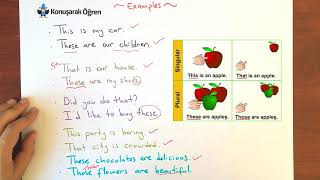 Konuşarak Öğren
~ Examples ~
This is my car.
These are our children.
That is our house.
Those are my shirts.
Did you do that?
I'd like to buy these.
This party is boring.
That city is crowded.
These chocolates are delicious.
Those flowers are beautiful.
Singular
This is an apple.
That is an apple.
Plural
These are apples.
Those are apples.